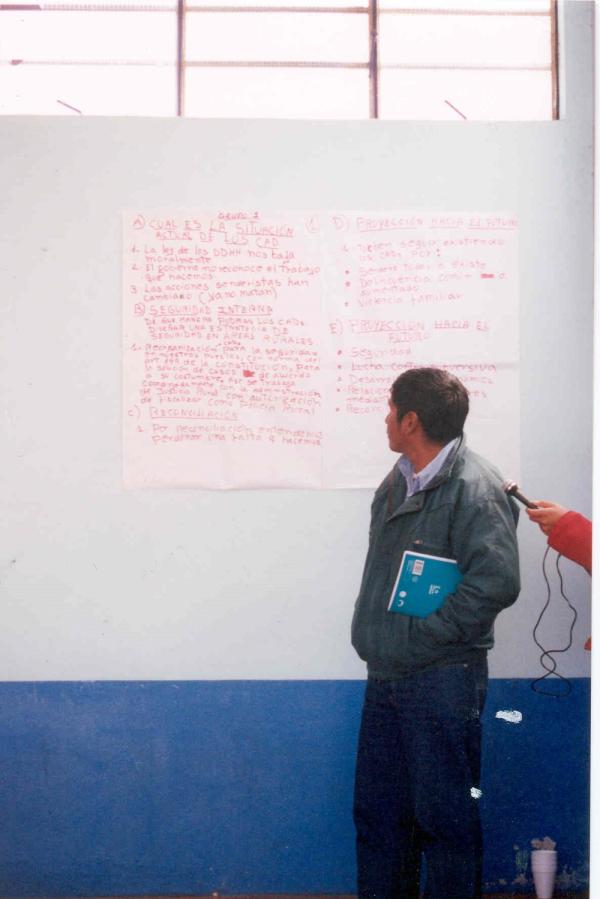 GRUPO 1
A) CUAL ES LA SITUACIÓN
ACTUAL DE LOS CAD
1. La ley de los DDHH nos baja
moralmente
2. El gobierno no reconoce el trabajo
que hacemos
3. Las acciones senderistas han
cambiado (ya no matan)
B) SEGURIDAD INTERNA
DE QUE MANERA PODRÁN LOS CADs
DISEÑAR UNA ESTRATEGIA DE
SEGURIDAD EN ÁREAS RURALES.
1. Reorganización para la seguridad
de nuestros pueblos, con norma del
art. 149 de la CONSTITUCIÓN, para
la solución de casos de acuerdo
a su costumbre.
con la administración
de Justicia Rural con autorización
de como Policía Rural
C) RECONCILIACIÓN
1. Por reconciliación entendemos
perdonar una falta q' hacemos
D) PROYECCIÓN HACIA EL FUTURO
1. Tienen seguir existiendo
los CADs POR:
• Sendero todavía existe
• Delincuencia común a
aumentado
• Violencia familiar
E) PROYECCIÓN HACIA EL
FUTURO
• Seguridad
• Lucha
• Desarro
• Relacion